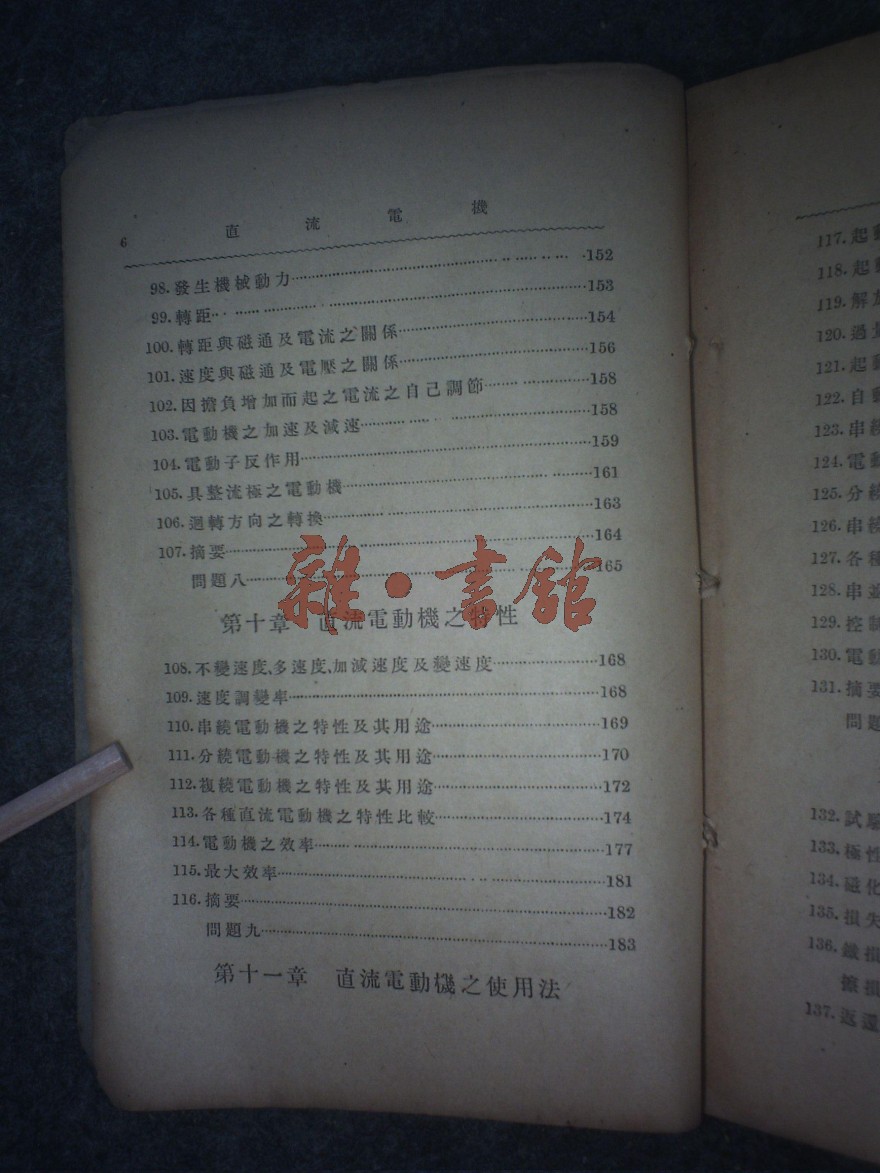 6 直流電機
98.發生機械動力……152
99.轉距……153
100.轉距與磁通及電流之關係……154
101.速度與磁通及電壓之關係……156
102.因擔負增加而起之電流之自己調節……158
103.電動機之加速及減速……158
104.電動子反作用……159
105.具整流極之電動機……161
106.迴轉方向之轉換……163
107.摘要……164
問題八……165
雜·書館
第十章 直流電動機之特性
108.不變速度,多速度,加減速度及變速度……168
109.速度調變率……168
110.串繞電動機之特性及其用途……169
111.分繞電動機之特性及其用途……170
112.複繞電動機之特性及其用途……172
113.各種直流電動機之特性比較……174
114.電動機之效率……177
115.最大效率……181
116.摘要……182
問題九……183
第十一章 直流電動機之使用法
117.起動
118.起
119.解
120.過
121.起動
122.自動
123.串繞
124.電動
125.分繞
126.串繞
127.各種
128.串並
129.控制
130.電動
131.摘要
問題
132.試驗
133.極性
134.磁化
135.損失
136.鐵損
137.返還